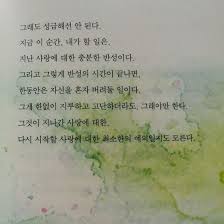 그래도 성급해선 안 된다.
지금 이 순간, 내가 할 일은,
지난 사랑에 대한 충분한 반성이다.
그리고 그렇게 반성의 시간이 끝나면,
한동안은 자신을 혼자 버려둘 일이다.
그게 한없이 지루하고 고단하더라도, 그래야만 한다.
그것이 지나간 사랑에 대한,
다시 시작할 사랑에 대한 최소한의 예의일지도 모른다.